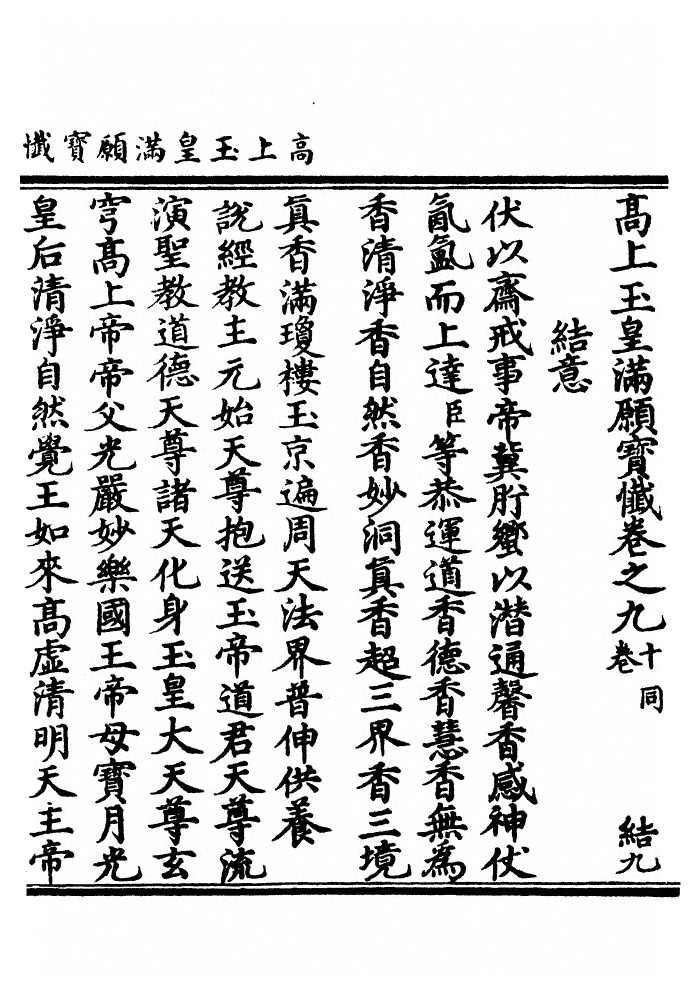 高上玉皇滿願寶懺
高上玉皇滿願寶懺卷之九 十卷同 結九
結意
伏以齋戒事帝冀肸蠁以潛通馨香感神仗
氤氳而上達臣等恭運道香德香慧香無為
香清淨香自然香妙洞真香超三界香三境
真香滿瓊樓玉京遍周天法界普伸供養
說經教主元始天尊抱送玉帝道君天尊流
演聖教道德天尊諸天化身玉皇大天尊玄
穹高上帝帝父光嚴妙樂國王帝母寶月光
皇后清淨自然覺王如來高虛清明天主帝